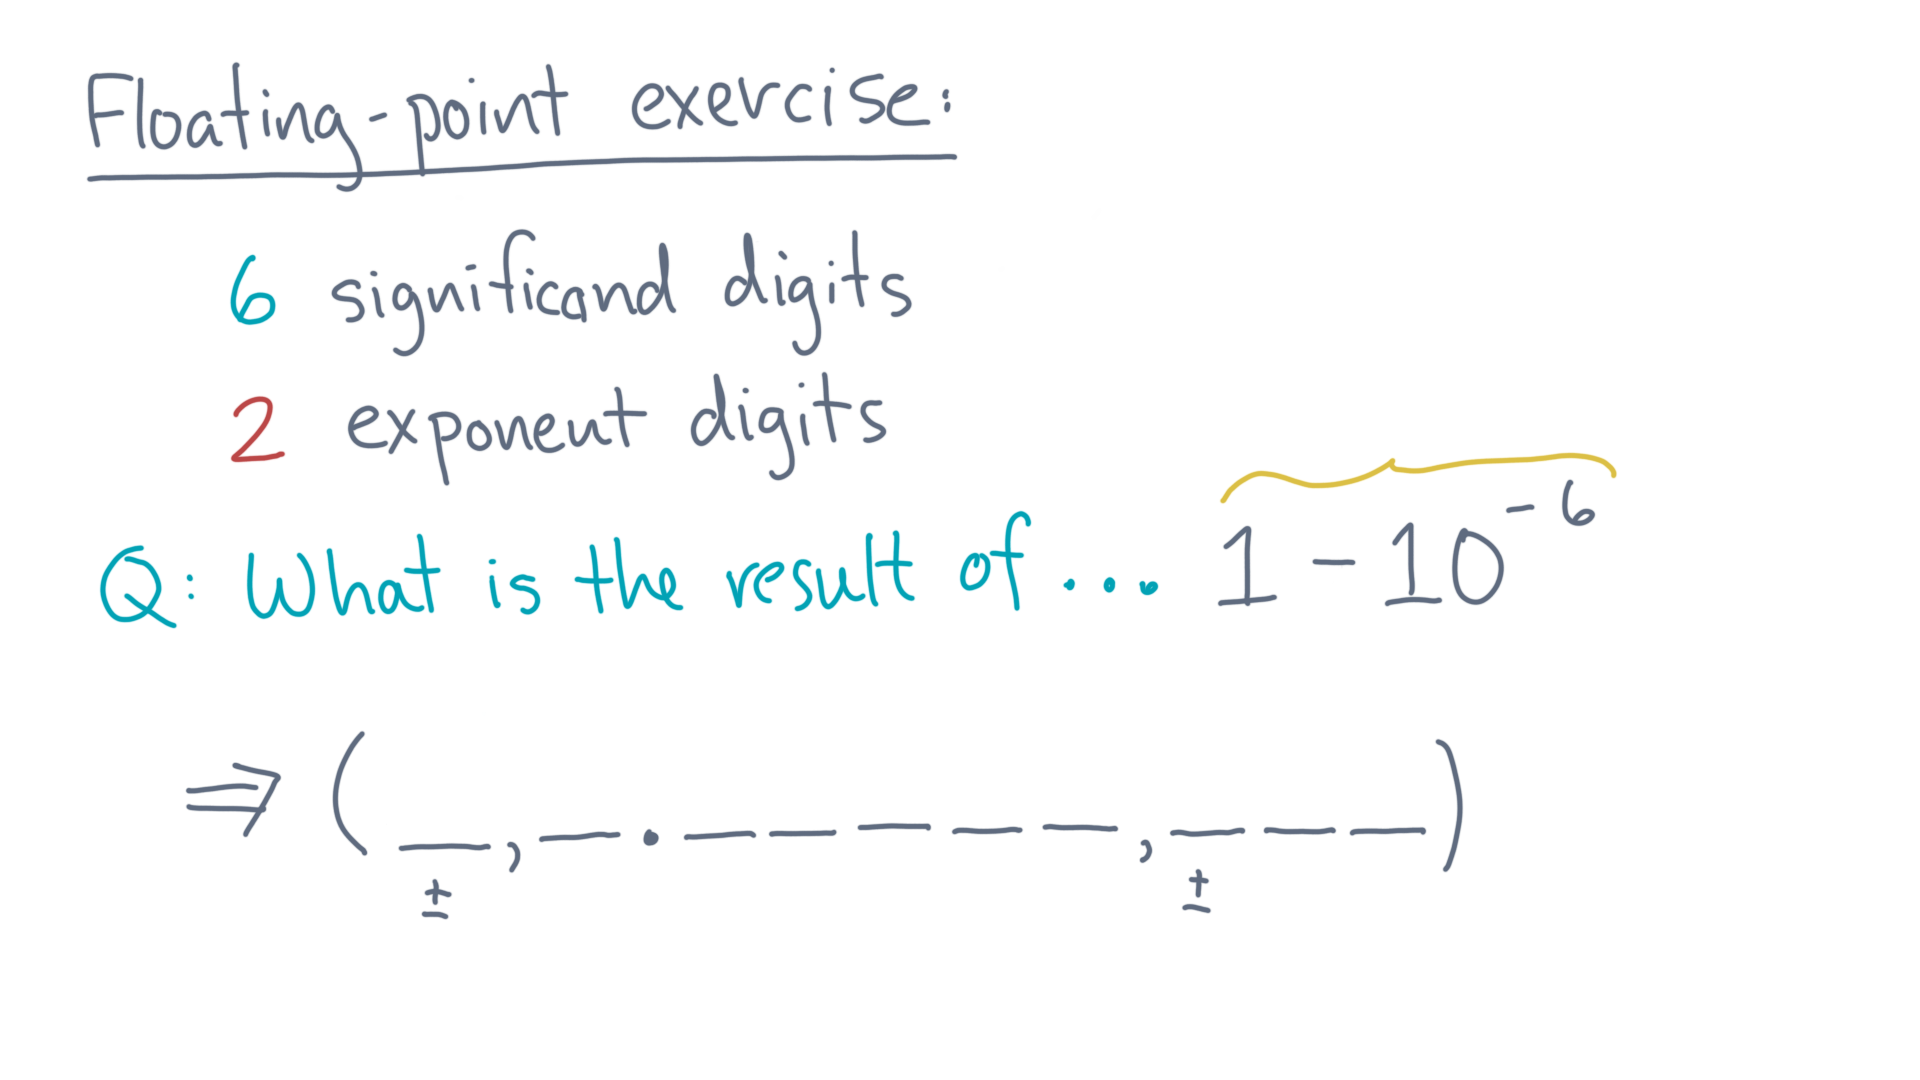 Floating-point exercise:
6 significand digits
2 exponent digits
Q: What is the result of ... 1 - 10⁻⁶
⇒ ( __ , __ . __ __ __ __ __ , __ __ __ )
± ±